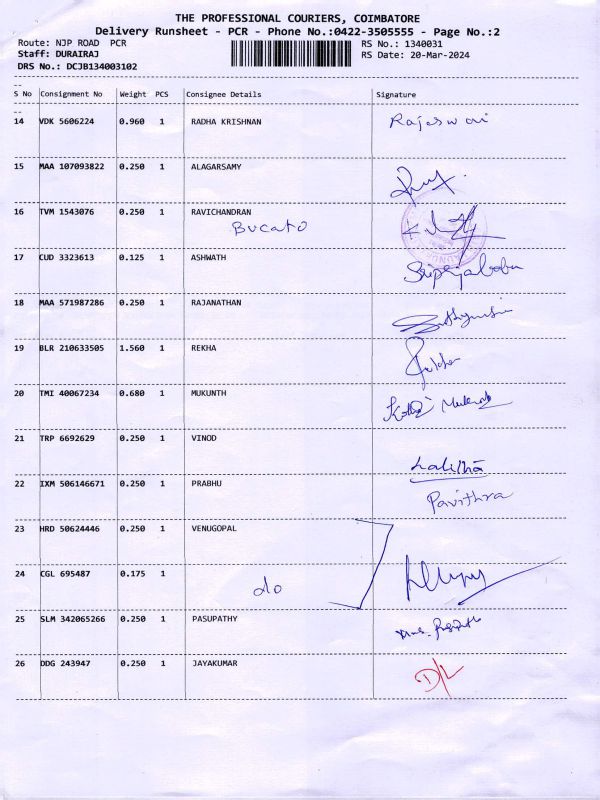 THE PROFESSIONAL COURIERS, COIMBATORE
Delivery Runsheet - PCR - Phone No.:0422-3505555 - Page No.:2
Route: NJP ROAD PCR RS No.: 1340031
Staff: DURAIRAJ RS Date: 20-Mar-2024
DRS No.: DCJB134003102
S No Consignment No Weight PCS Consignee Details Signature
14 VDK 5606224 0.960 1 RADHA KRISHNAN Rajeswari
15 MAA 107093822 0.250 1 ALAGARSAMY
16 TVM 1543076 0.250 1 RAVICHANDRAN
Bucato
17 CUD 3323613 0.125 1 ASHWATH
18 MAA 571987286 0.250 1 RAJANATHAN
19 BLR 210633505 1.560 1 REKHA
20 TMI 40067234 0.680 1 MUKUNTH
21 TRP 6692629 0.250 1 VINOD Lalitha
22 IXM 506146671 0.250 1 PRABHU Pavithra
23 HRD 50624446 0.250 1 VENUGOPAL
24 CGL 695487 0.175 1 do
25 SLM 342065266 0.250 1 PASUPATHY
26 DDG 243947 0.250 1 JAYAKUMAR D/L